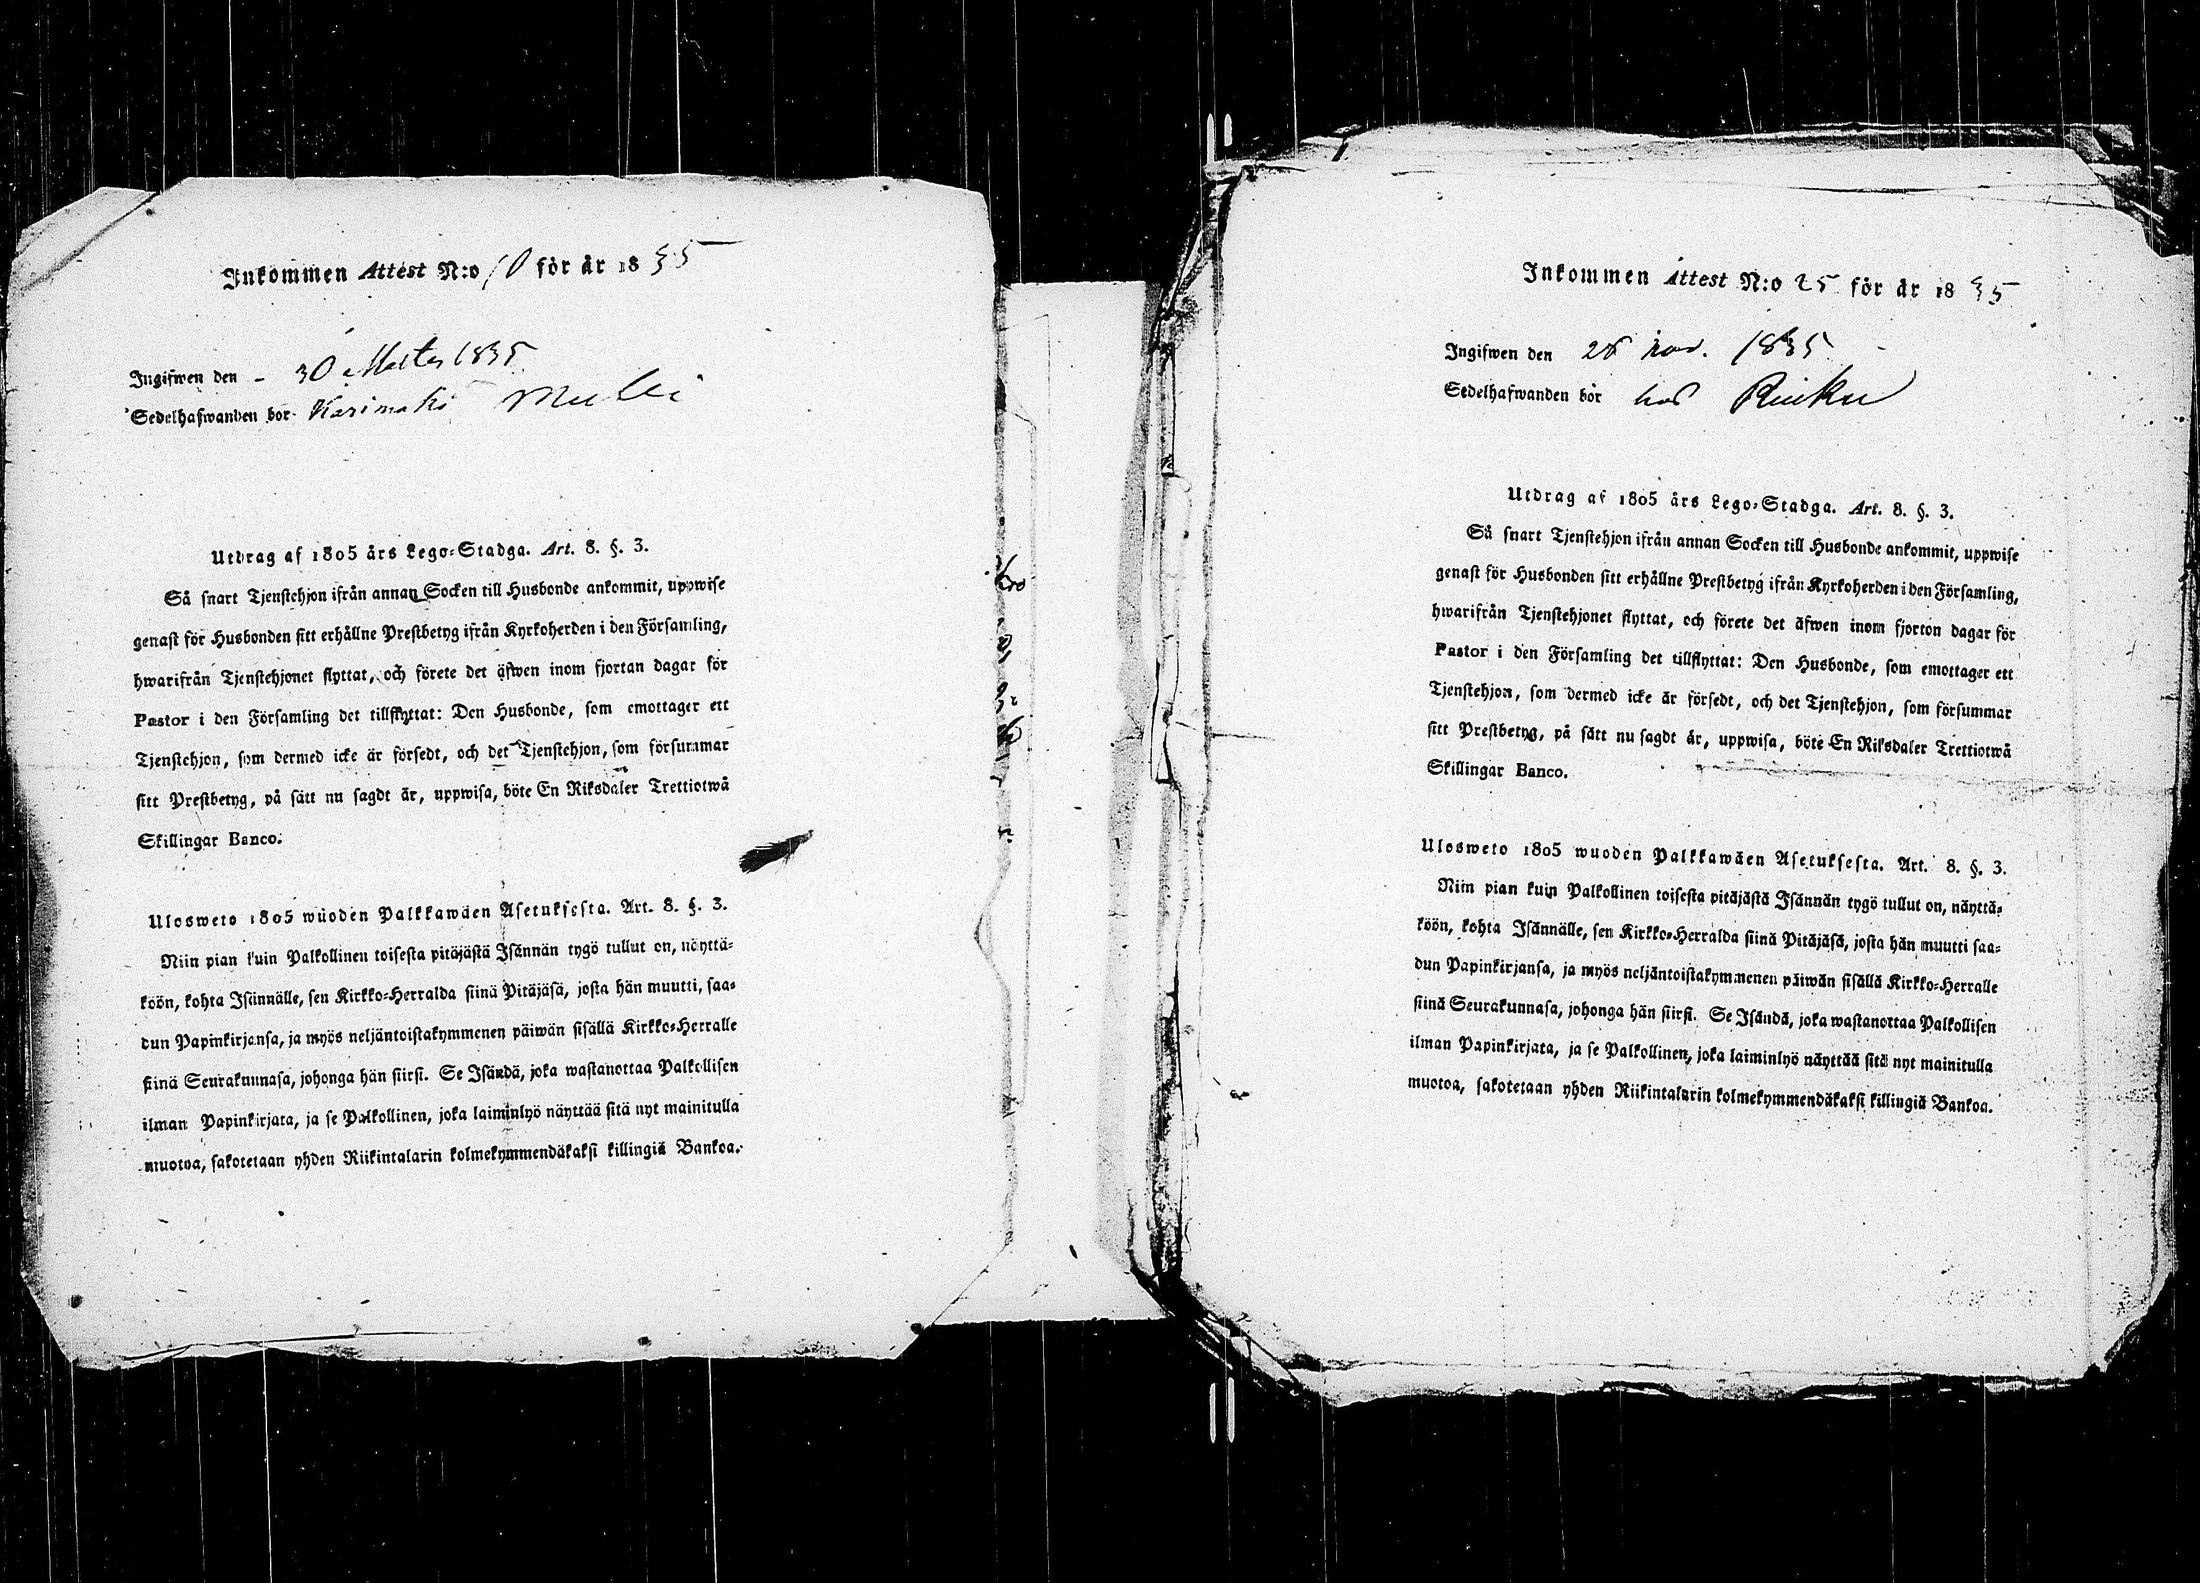 Inkommen Attest N:o 10 för år 1835
Ingifwen den - 30 Martii 1835
Sedelhafwanden bor Karimäki
Utdrag af 1805 års Lego-Stadga. Art. 8. §. 3.
Så snart Tjenstehjon ifrån annan Socken till Husbonde ankommit, uppwise
genast för Husbonden sitt erhållne Prestbetyg ifrån Kyrkoherden i den Församling,
hwarifrån Tjenstehjonet flyttat, och förete det äfwen inom fjortan dagar för
Pastor i den Församling det tillflyttat: Den Husbonde, som emottager ett
Tjenstehjon, som dermed icke är försedt, och det Tjenstehjon, som försummar
sitt Prestbetyg, på sätt nu sagdt är, uppwisa, böte En Riksdaler Trettiotwå
Skillingar Banco.
Ulosweto 1805 wuoden Palkkawäen Asetuksesta. Art. 8. §. 3.
Niin pian kuin Palkollinen toisesta pitäjästä Isännän tygö tullut on, näyttä-
köön, kohta Isännälle, sen Kirkko-Herralda siinä Pitäjäsä, josta hän muutti, saa-
dun Papinkirjansa, ja myös neljäntoistakymmenen päiwän sisällä Kirkko-Herralle
siinä Seurakunnasa, johonga hän siirsi. Se Isändä, joka wastanottaa Palkollisen
ilman Papinkirjata, ja se Palkollinen, joka laiminlyö näyttää sitä nyt mainitulla
muotoa, sakotetaan yhden Riikintalarin kolmekymmendäkaksi killingiä Bankoa.
Inkommen Attest N:o 25 för år 1835
Ingifwen den 28 nov. 1835
Sedelhafwanden bor hos
Utdrag af 1805 års Lego-Stadga. Art. 8. §. 3.
Så snart Tjenstehjon ifrån annan Socken till Husbonde ankommit, uppwise
genast för Husbonden sitt erhållne Prestbetyg ifrån Kyrkoherden i den Församling,
hwarifrån Tjenstehjonet flyttat, och förete det äfwen inom fjorton dagar för
Pastor i den Församling det tillflyttat: Den Husbonde, som emottager ett
Tjenstehjon, som dermed icke är försedt, och det Tjenstehjon, som försummar
sitt Prestbetyg, på sätt nu sagdt är, uppwisa, böte En Riksdaler Trettiotwå
Skillingar Banco.
Ulosweto 1805 wuoden Palkkawäen Asetuksesta. Art. 8. §. 3.
Niin pian kuin Palkollinen toisesta pitäjästä Isännän tygö tullut on, näyttä-
köön, kohta Isännälle, sen Kirkko-Herralda siinä Pitäjäsä, josta hän muutti saa-
dun Papinkirjansa, ja myös neljäntoistakymmenen päiwän sisällä Kirkko-Herralle
siinä Seurakunnasa, johonga hän siirsi. Se Isändä, joka wastanottaa Palkollisen
ilman Papinkirjata, ja se Palkollinen, joka laiminlyö näyttää sitä nyt mainitulla
muotoa, sakotetaan yhden Riikintalarin kolmekymmendäkaksi killingiä Bankoa.